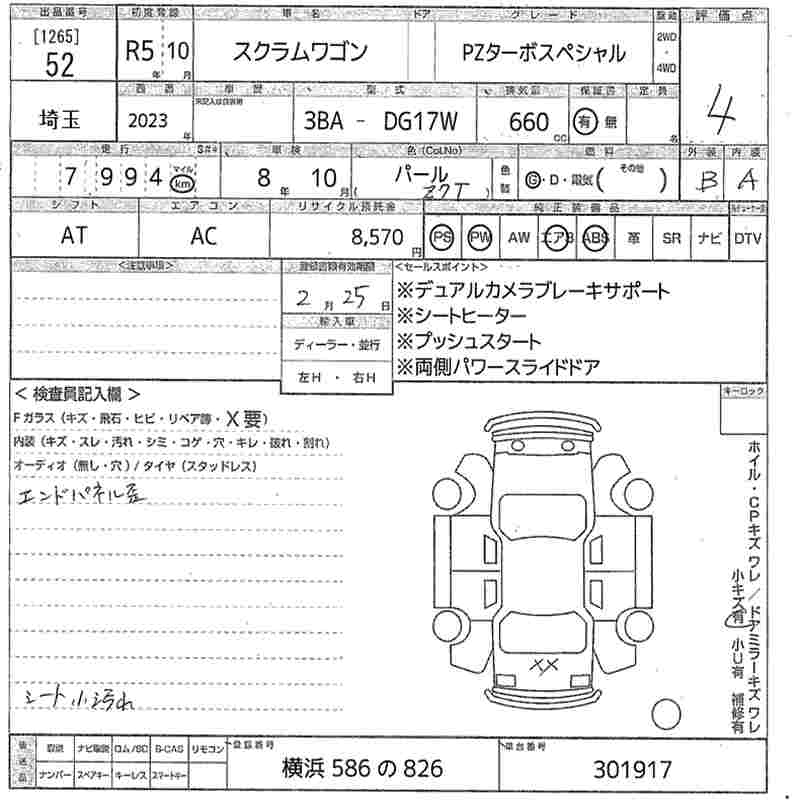 出品番号 初度登録 車名 ドア グレード 駆動 評価点
[1265]
52
R5 10 年 月
スクラムワゴン
PZターボスペシャル
2WD
・
4WD
4
西暦 車歴 型式 排気量 保証書 定員
未記入は自家用
埼玉
2023 年
3BA - DG17W
660 cc
有 無
名
走行 車検 色(Col.No) 燃料 外装 内装
7 9 9 4 マイル km
8 年 10 月
パール
( Z7T )
色替
G・D・電気( その他 )
B A
シフト エアコン リサイクル預託金 純正装備品
AT
AC
8,570 円
PS PW AW エアB ABS 革 SR ナビ DTV
<注意事項>
登録書類有効期限
2 月 25 日
輸入車
ディーラー・並行
左H ・ 右H
<セールスポイント>
※デュアルカメラブレーキサポート
※シートヒーター
※プッシュスタート
※両側パワースライドドア
< 検査員記入欄 >
Fガラス(キズ・飛石・ヒビ・リペア跡・X要)
内装(キズ・スレ・汚れ・シミ・コゲ・穴・キレ・破れ・割れ)
オーディオ(無し・穴)/タイヤ(スタッドレス)
エンドパネル歪
シート小汚れ
キーロック
ホイル・CPキズワレ/ドアミラーキズワレ
小キズ有 小U有 補修有
XX
後送品
取説 ナビ取説 ロム/SD B-CAS リモコン
ナンバー スペアキー キーレス スマートキー
登録番号
横浜 586 の 826
車台番号
301917